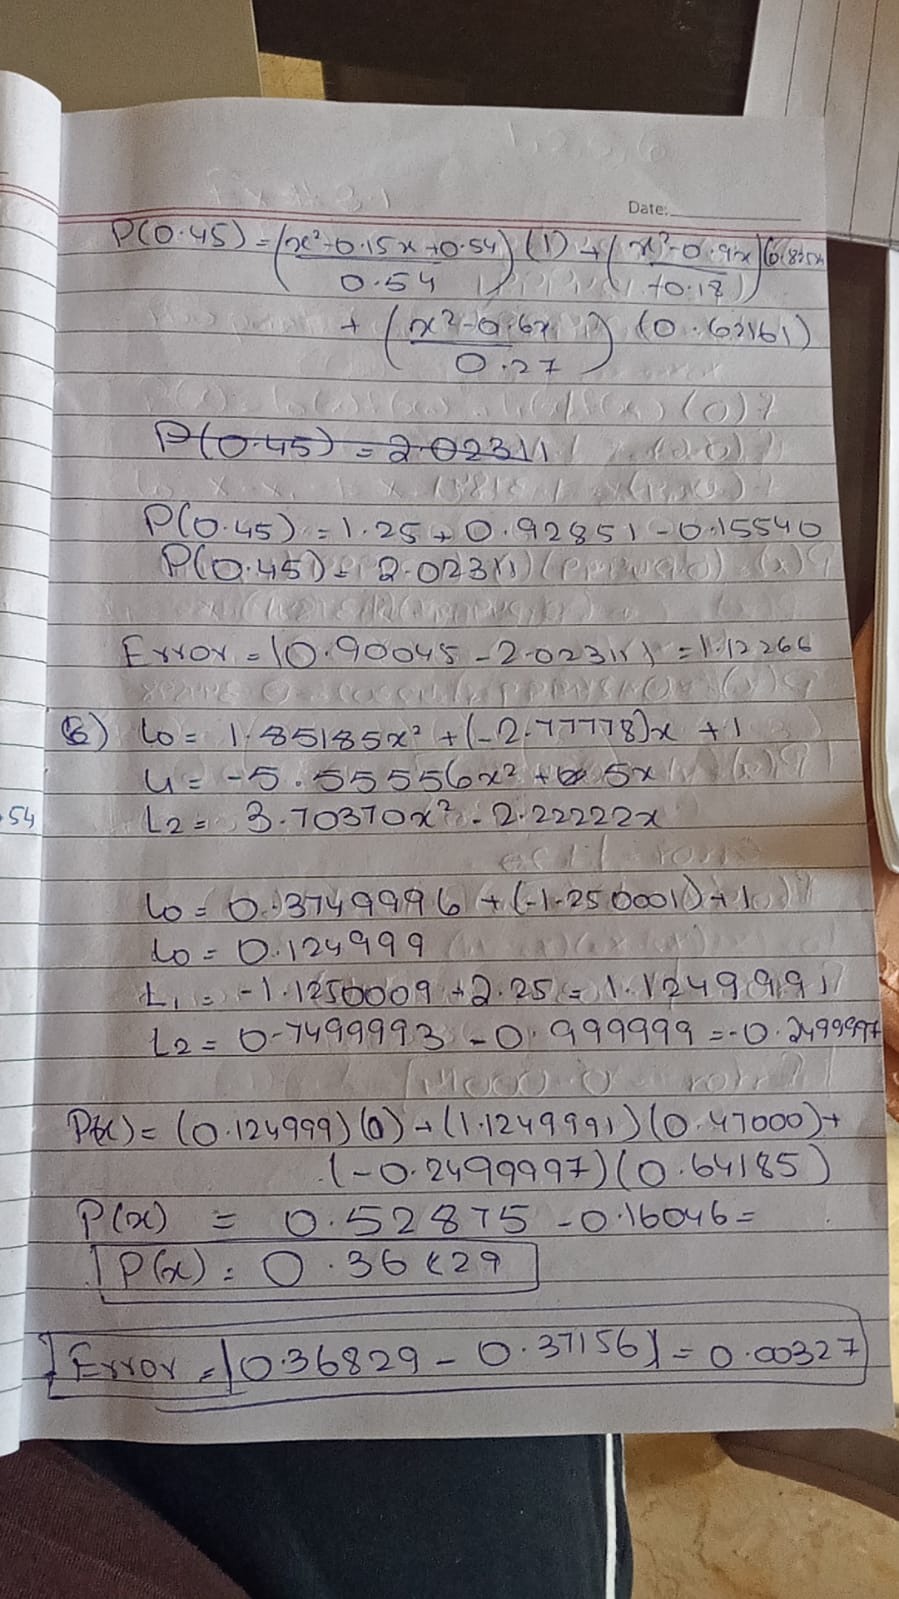 Date:
P(0.45) = (x²-0.15x+0.54 / 0.54) (1) + (x²-0.9x / +0.18)
+ (x²-0.6x / 0.27) (0.62161)
P(0.45) = 2.02311
P(0.45) = 1.25 + 0.92851 - 0.15540
P(0.45) = 2.02311
Error = |0.90045 - 2.02311| = 1.12266
L0 = 1.85185x² + (-2.77778)x + 1
L1 = -5.55556x² + 5x
54
L2 = 3.70370x² - 2.22222x
L0 = 0.3749996 + (-1.250001) + 1
L0 = 0.124999
L1 = -1.1250009 + 2.25 = 1.1249991
L2 = 0.7499993 - 0.999999 = -0.2499997
P(x) = (0.124999)(0) + (1.1249991)(0.47000) +
(-0.2499997)(0.64185)
P(x) = 0.52875 - 0.16046 =
P(x) = 0.36829
Error = |0.36829 - 0.37156| = 0.00327